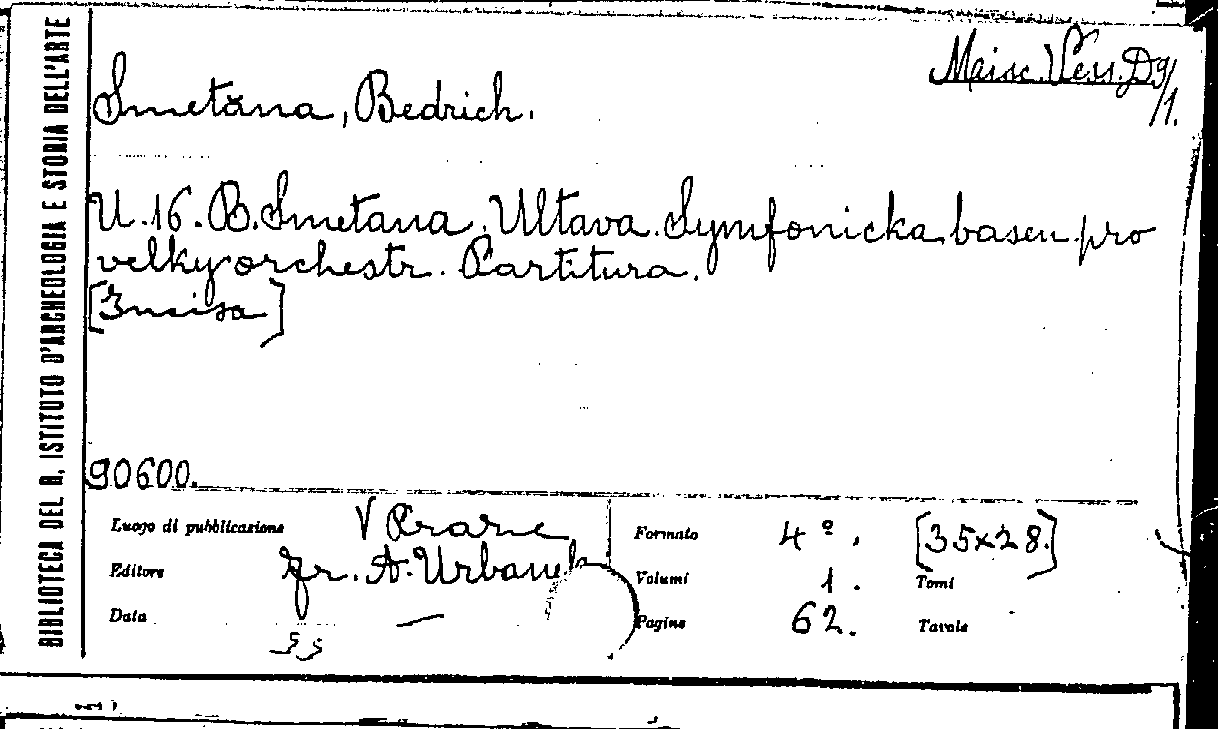 BIBLIOTECA DEL R. ISTITUTO D'ARCHEOLOGIA E STORIA DELL'ARTE
Smetana, Bedrich.
U.16. B. Smetana. Ultava. Symfonicka basen pro
velky orchestr. Partitura.
[Incisa]
90600.
Luogo di pubblicazione V Praze
Editore Fr. A. Urbanek
Data —
Formato 4º. [35x28.]
Volumi 1. Tomi
Pagine 62. Tavole